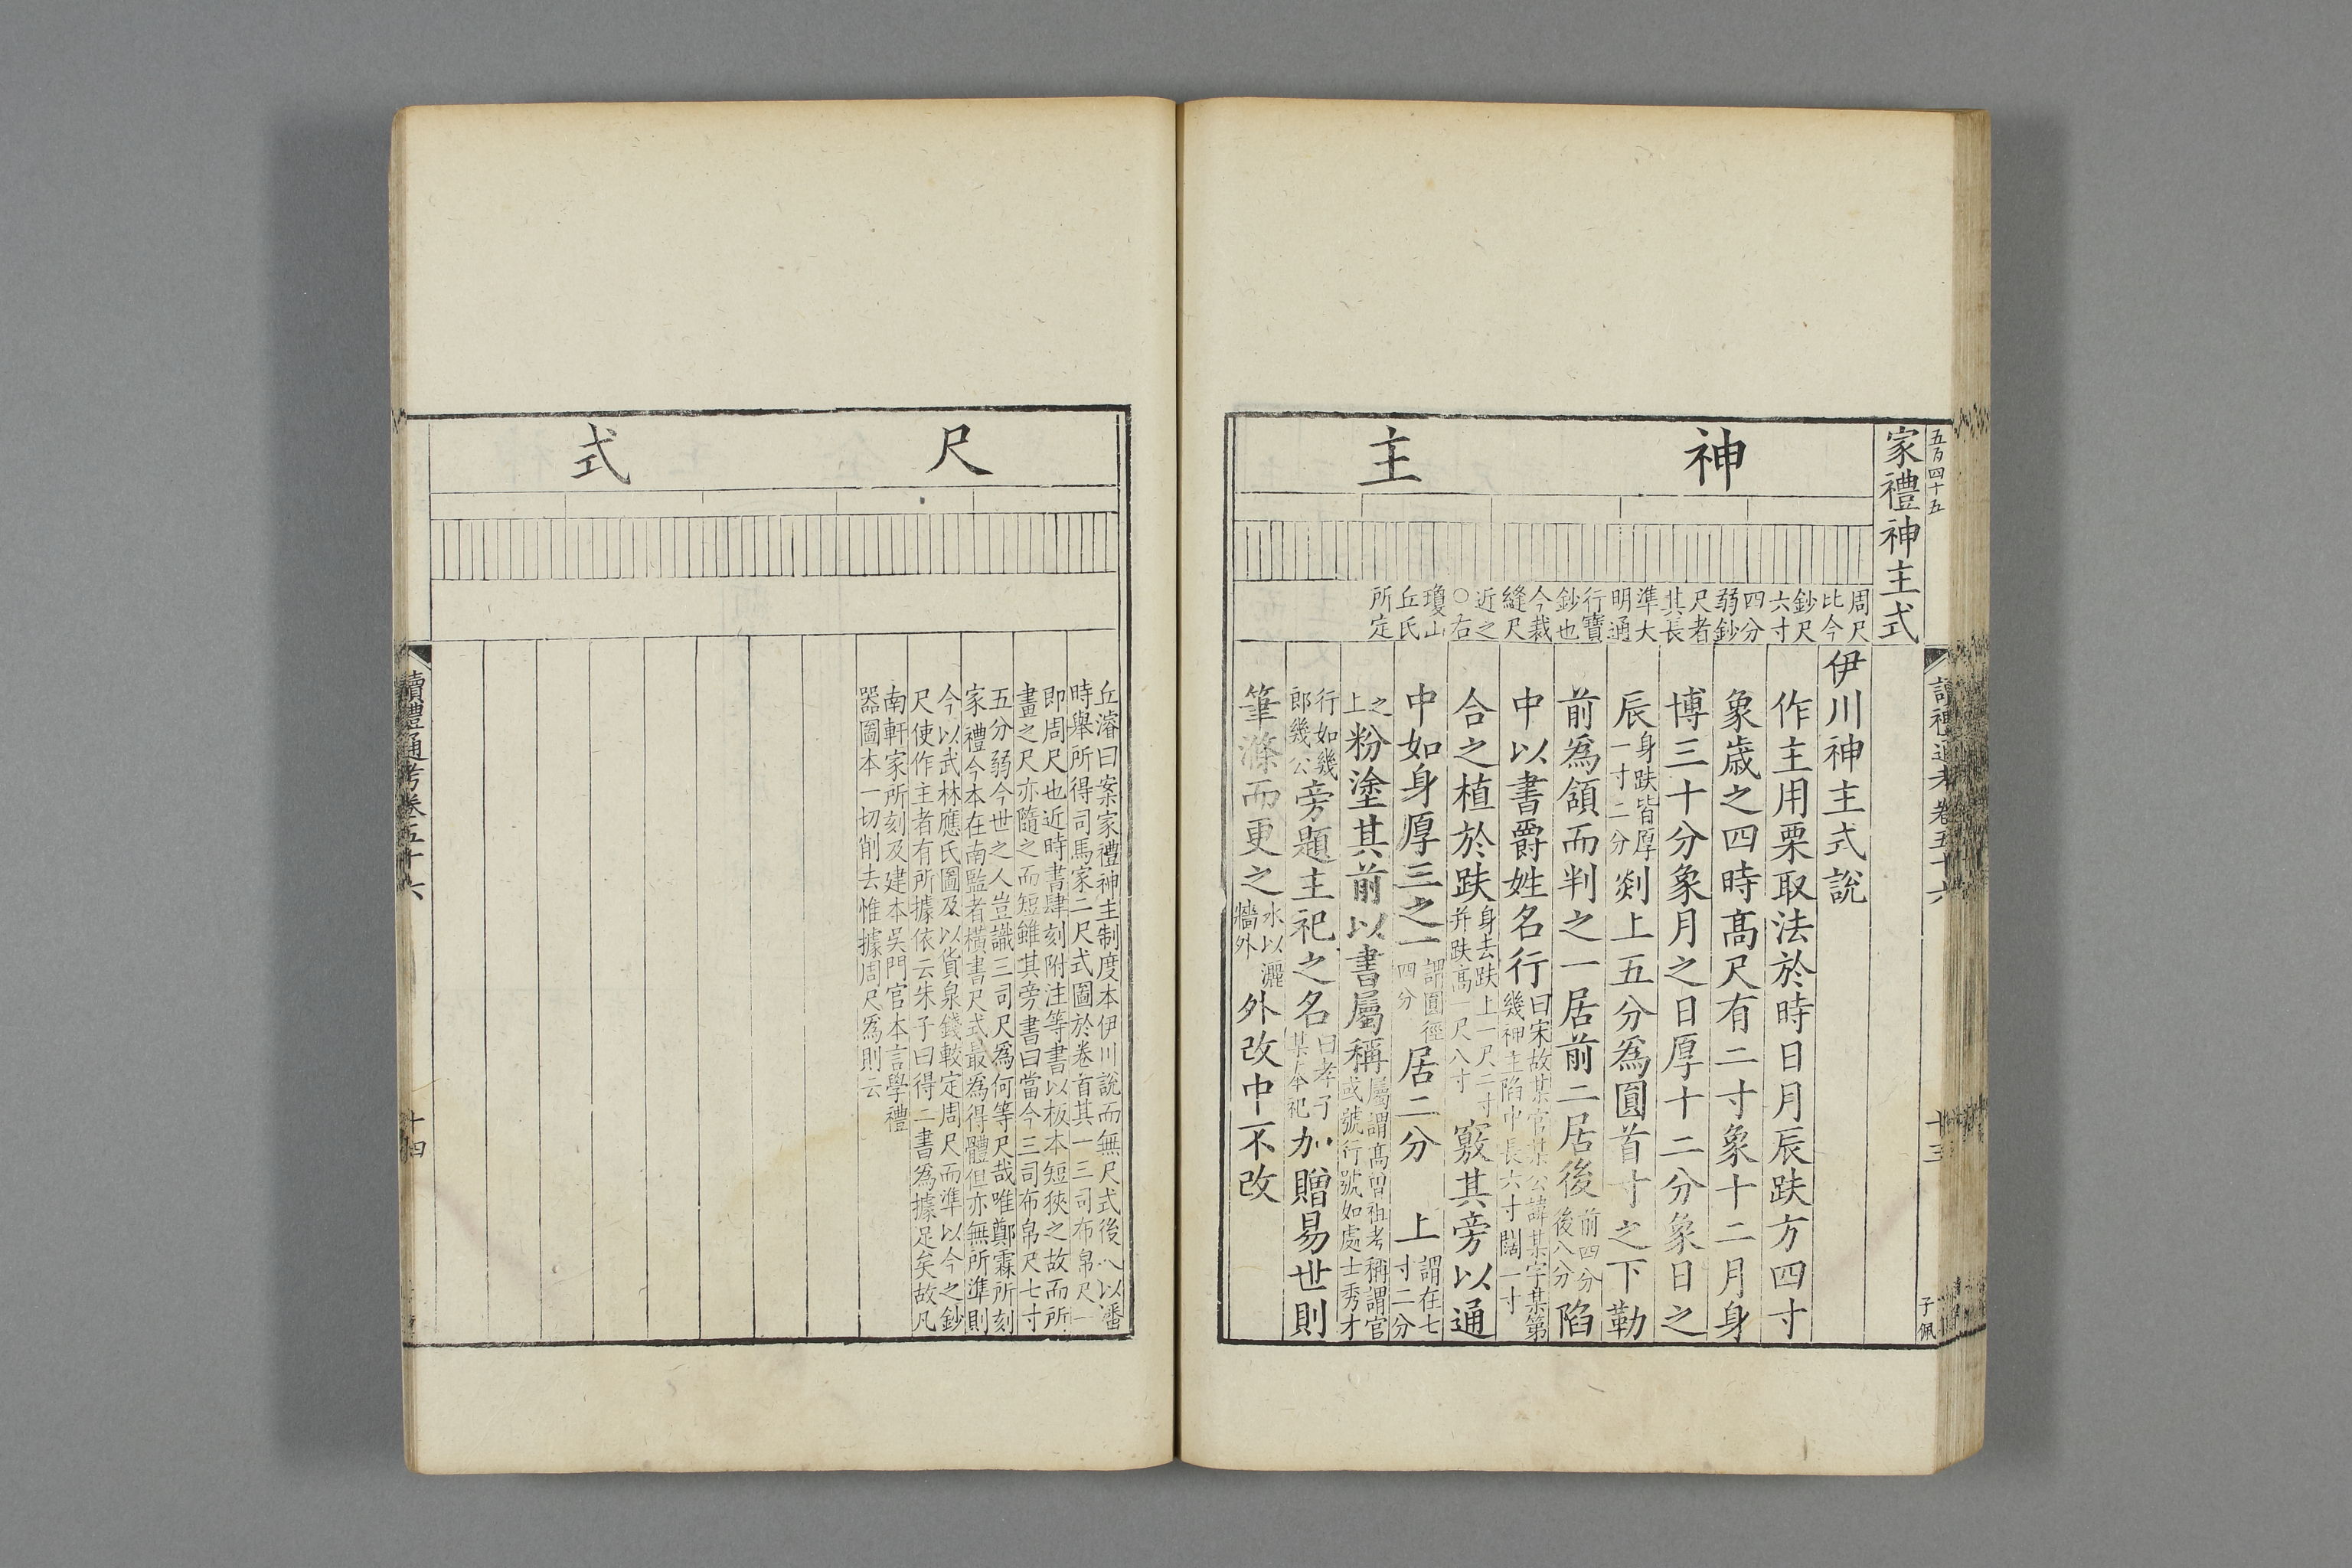 五百四十五
讀禮通考卷五十六
十三
子佩
家禮神主式
神主
周尺
比今
鈔尺
六寸
四分
弱鈔
尺者
其長
準大
明通
行寶
鈔也
今裁
縫尺
近之
○右
瓊山
丘氏
所定
伊川神主式說
作主用栗取法於時日月辰趺方四寸
象歲之四時高尺有二寸象十二月身
博三十分象月之日厚十二分象日之
辰身趺皆厚一寸二分剡上五分為圓首寸之下勒
前為頷而判之一居前二居後前四分後八分陷
中以書爵姓名行曰宋故某官某公諱某字某第幾神主陷中長六寸闊一寸
合之植於趺身去趺上一尺二寸并趺高一尺八寸竅其旁以通
中如身厚三之一謂圓徑四分居二分上謂在七寸二分
之上粉塗其前以書屬稱屬謂高曾祖考稱謂官或號行號如處士秀才
行如幾郎幾公旁題主祀之名曰孝子某奉祀加贈易世則
筆滌而更之水以灑牆外外改中不改
尺式
丘濬曰案家禮神主制度本伊川說而無尺式後人以潘
時舉所得司馬家二尺式圖於卷首其一三司布帛尺一
即周尺也近時書肆刻附注等書以板本短狹之故而所
畫之尺亦隨之而短雖其旁書曰當今三司布帛尺七寸
五分弱今世之人豈識三司尺為何等尺哉唯鄭霖所刻
家禮今本在南監者橫書尺式最為得體但亦無所準則
今以武林應氏圖及以貨泉錢較定周尺而準以今之鈔
尺使作主者有所據依云朱子曰得二書為據足矣故凡
南軒家所刻及建本吳門官本言學禮
器圖本一切削去惟據周尺為則云
讀禮通考卷五十六
十四